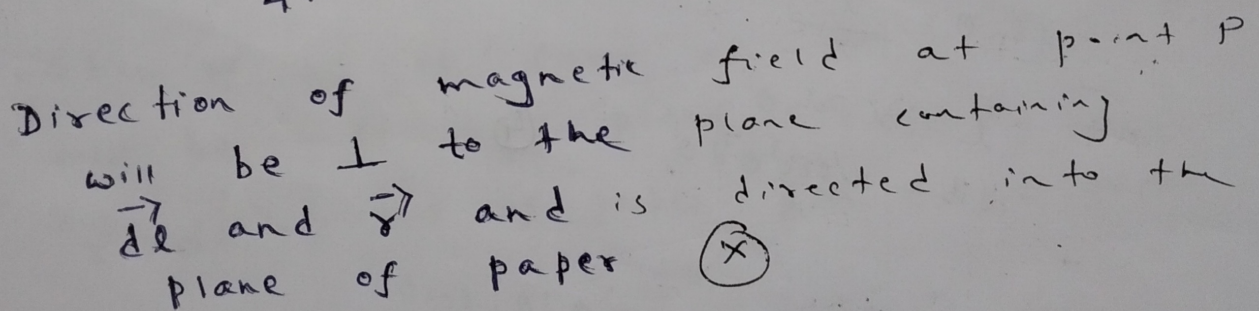 Direction of magnetic field at point P
will be ⊥ to the plane containing
$\vec{dl}$ and $\vec{r}$ and is directed into the
plane of paper ⊗